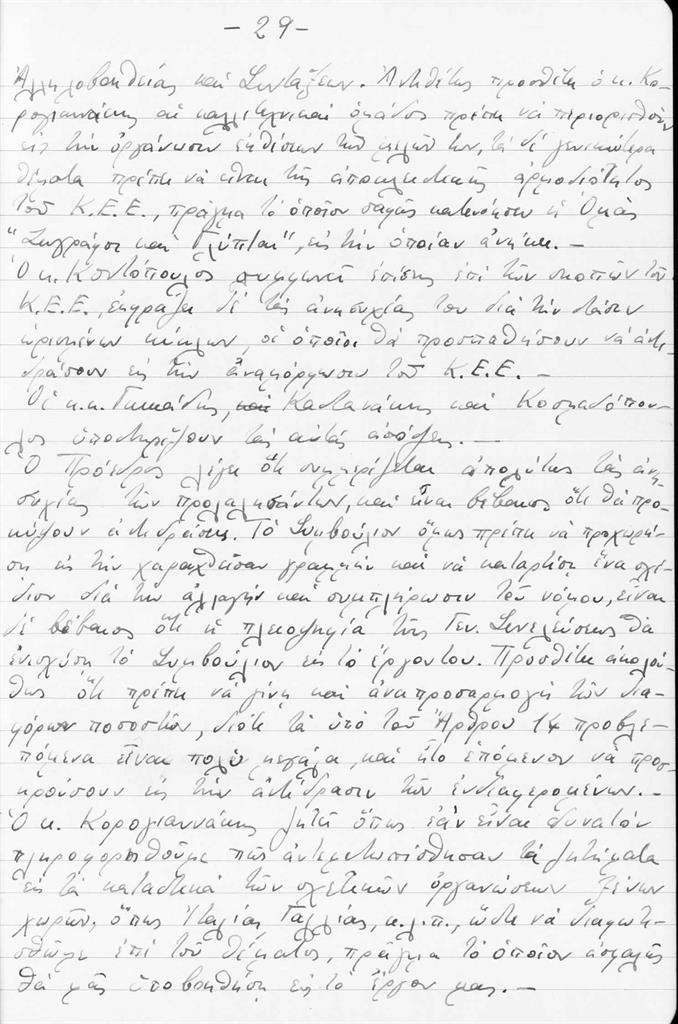 - 29 -
Ἀλληλοβοηθείας καὶ Συντάξεων. Ἀντιθέτως προσθέτει ὁ κ. Κο-
ρογιαννάκης αἱ καλλιτεχνικαὶ ὁμάδες πρέπει νὰ περιορισθοῦν
εἰς τὴν ὀργάνωσιν ἐκθέσεων τῶν μελῶν των, τὰ δὲ γενικώτερα
θέματα πρέπει νὰ εἶναι τῆς ἀποκλειστικῆς ἁρμοδιότητος
τοῦ Κ.Ε.Ε., πρᾶγμα τὸ ὁποῖον σαφῶς κατενόησεν ἡ Ὁμὰς
"Ζωγράφοι καὶ Γλύπται", εἰς τὴν ὁποίαν ἀνήκει. -
Ὁ κ. Κοντόπουλος συμφωνεῖ ἐπίσης ἐπὶ τῶν σκοπῶν τοῦ
Κ.Ε.Ε. ἐκφράζει δὲ τὰς ἀνησυχίας του διὰ τὴν στάσιν
ὡρισμένων κύκλων, οἱ ὁποῖοι θὰ προσπαθήσουν νὰ ἀντι-
δράσουν εἰς τὴν ἀναμόρφωσιν τοῦ Κ.Ε.Ε. -
Οἱ κ.κ. Κατσανάκης καὶ Κοσμαδόπου-
λος ὑποστηρίζουν τὰς αὐτὰς ἀπόψεις. -
Ὁ Πρόεδρος λέγει ὅτι συμμερίζεται ἀπολύτως τὰς ἀνη-
συχίας τῶν προλαλησάντων, καὶ εἶναι βέβαιος ὅτι θὰ προ-
κύψουν ἀντιδράσεις. Τὸ Συμβούλιον ὅμως πρέπει νὰ προχωρή-
ση εἰς τὴν χαραχθεῖσαν γραμμὴν καὶ νὰ καταρτίση ἕνα σχέ-
διον διὰ τὴν ἀλλαγὴν καὶ συμπλήρωσιν τοῦ νόμου, εἶναι
δὲ βέβαιος ὅτι ἡ πλειοψηφία τῆς Γεν. Συνελεύσεως θὰ
ἐνισχύση τὸ Συμβούλιον εἰς τὸ ἔργον του. Προσθέτει ἀκολού-
θως ὅτι πρέπει νὰ γίνη καὶ ἀναπροσαρμογὴ τῶν δια-
φόρων ποσοστῶν, διότι τὰ ὑπὸ τοῦ Ἄρθρου 14 προβλε-
πόμενα εἶναι πολὺ μεγάλα, καὶ ἦτο ἑπόμενον νὰ προσ-
κρούσουν εἰς τὴν ἀντίδρασιν τῶν ἐνδιαφερομένων. -
Ὁ κ. Κορογιαννάκης ζητεῖ ὅπως ἐὰν εἶναι δυνατὸν
πληροφορηθοῦμε πῶς ἀντεμετωπίσθησαν τὰ ζητήματα
εἰς τὰ καταστατικὰ τῶν σχετικῶν ὀργανώσεων ξένων
χωρῶν, ὅπως Ἰταλίας Γαλλίας, κ.λ.π., ὥστε νὰ διαφωτι-
σθῶμε ἐπὶ τοῦ θέματος, πρᾶγμα τὸ ὁποῖον ἀσφαλῶς
θὰ μᾶς ὑποβοηθήση εἰς τὸ ἔργον μας. -